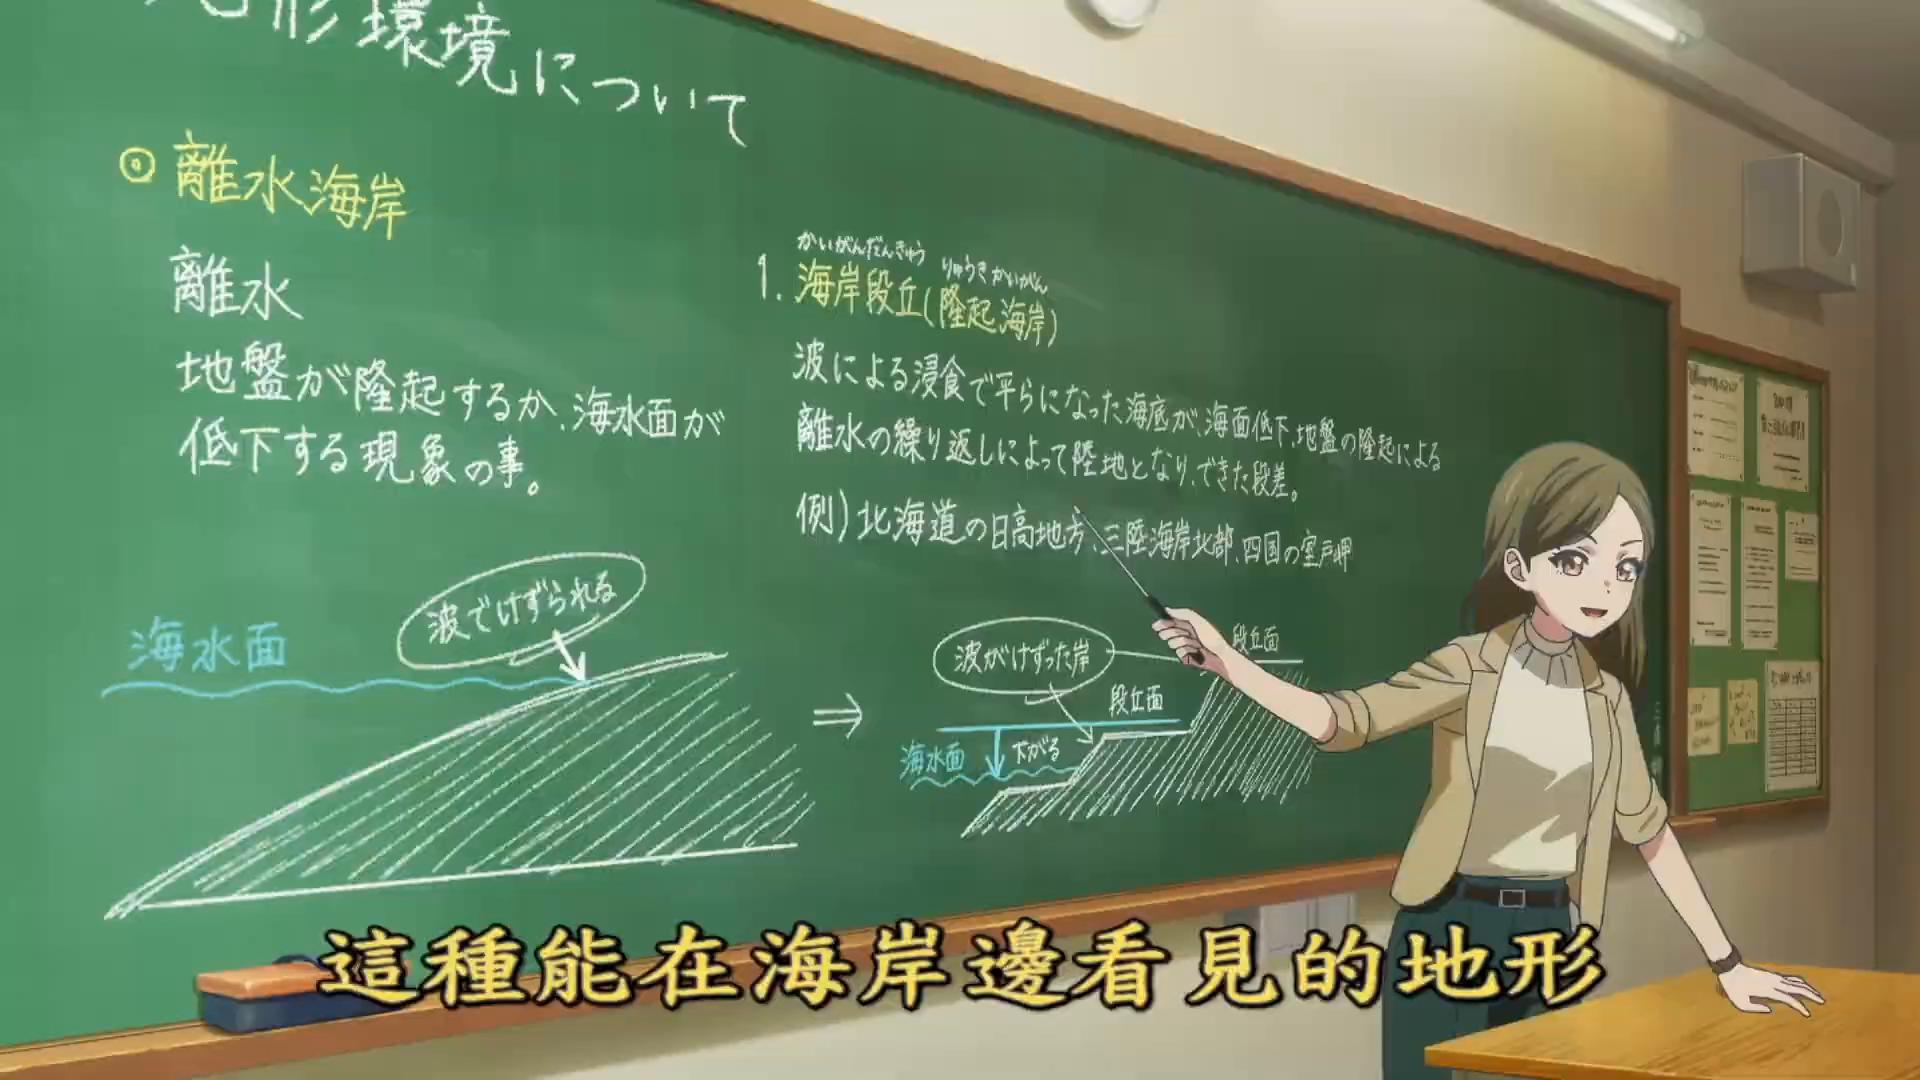 地形環境について
⦿離水海岸
離水
地盤が隆起するか、海水面が
低下する現象の事。
波でけずられる
海水面
かいがんだんきゅう りゅうきかいがん
1. 海岸段丘(隆起海岸)
波による浸食で平らになった海底が、海面低下、地盤の隆起による
離水の繰り返しによって陸地となり、できた段差。
例)北海道の日高地方、三陸海岸北部、四国の室戸岬
⇒
波がけずった岸
段丘面
段丘面
海水面
下がる
這種能在海岸邊看見的地形